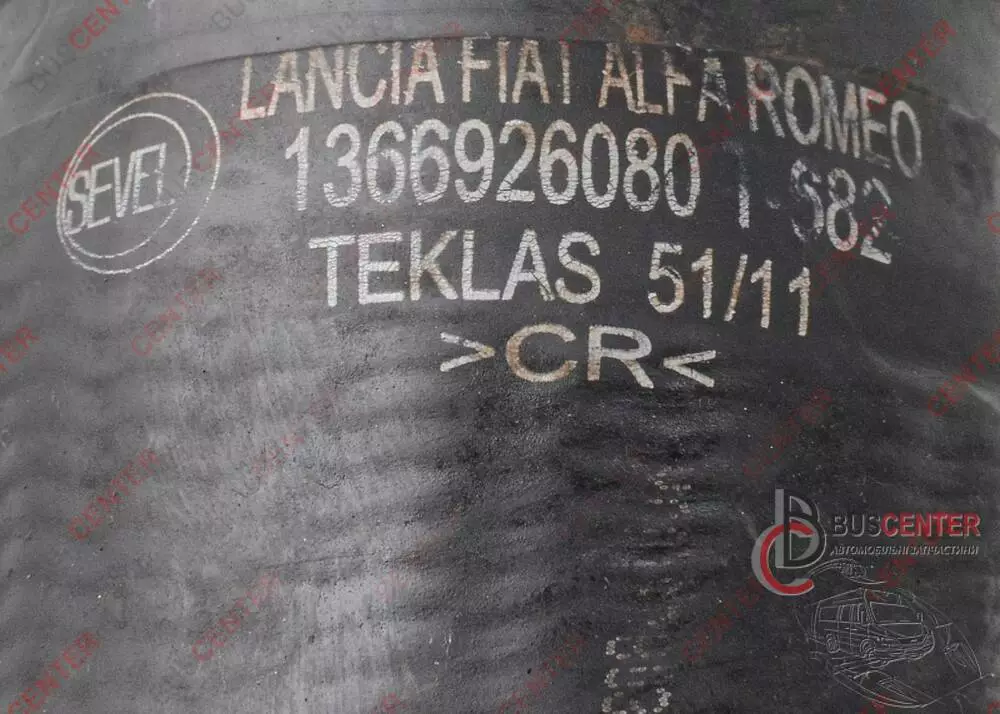 LANCIA FIAT ALFA ROMEO
SEVEL
1366926080 1-682
TEKLAS 51/11
>CR<
BUSCENTER
АВТОМОБІЛЬНІ ЗАПЧАСТИНИ